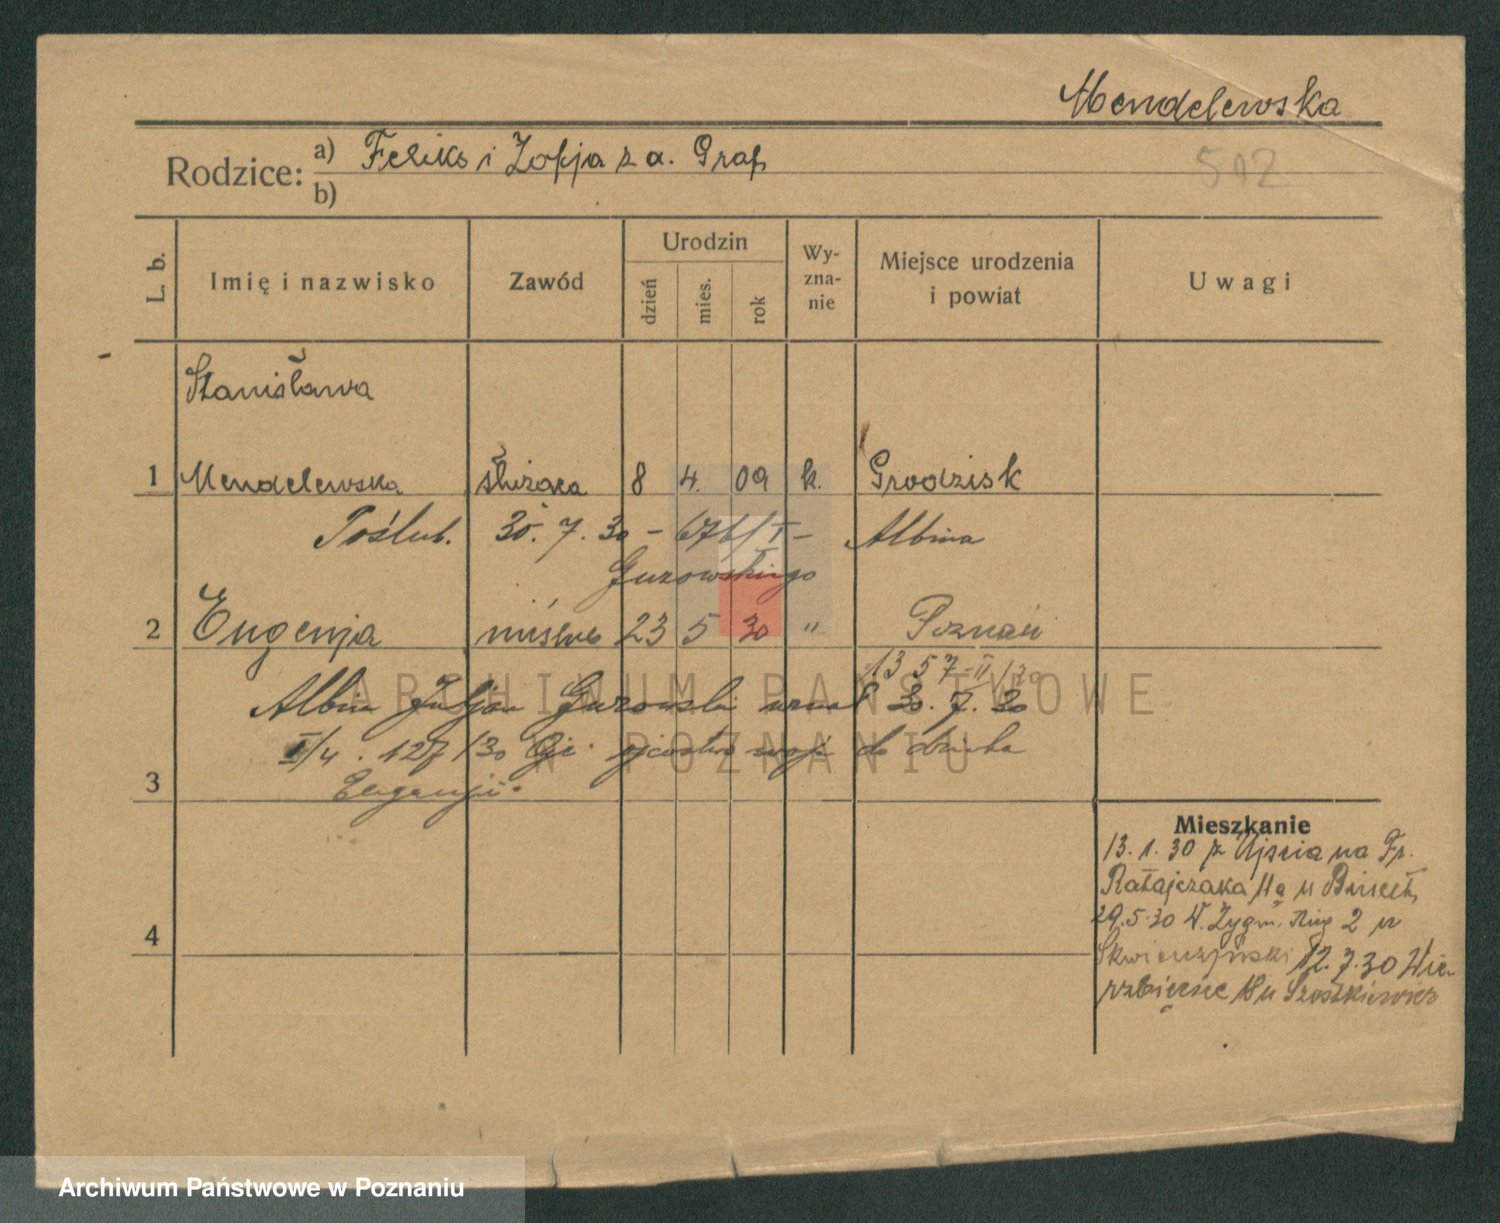 Mendelewska
Rodzice: a) Feliks i Zofja z d. Graf
b)
512
L. b.
Imię i nazwisko
Zawód
Urodzin
dzień
mies.
rok
Wy-
zna-
nie
Miejsce urodzenia
i powiat
Uwagi
Stanisława
1 Mendelewska służąca 8 4. 09 k. Grodzisk
Poślub. 30. 7. 30 – 676/I – Albina
Gurowskiego
2 Eugenja nieślub 23 5 30 " Poznań
1357-II/30
Albin Juljan Gurowski uznał 30. 7. 30
II/4. 127/30 ojcostwo swoje do dziecka
3 Eugenji.
Mieszkanie
13. 1. 30 z Ujścia na Fr.
Ratajczaka 11a u
29.5.30 W. Zygm. Aug 2 u
4 Skwierczyński 12.7.30 Wie
rzbięcice u Szostkiewicz
ARCHIWUM PAŃSTWOWE
W POZNANIU
Archiwum Państwowe w Poznaniu